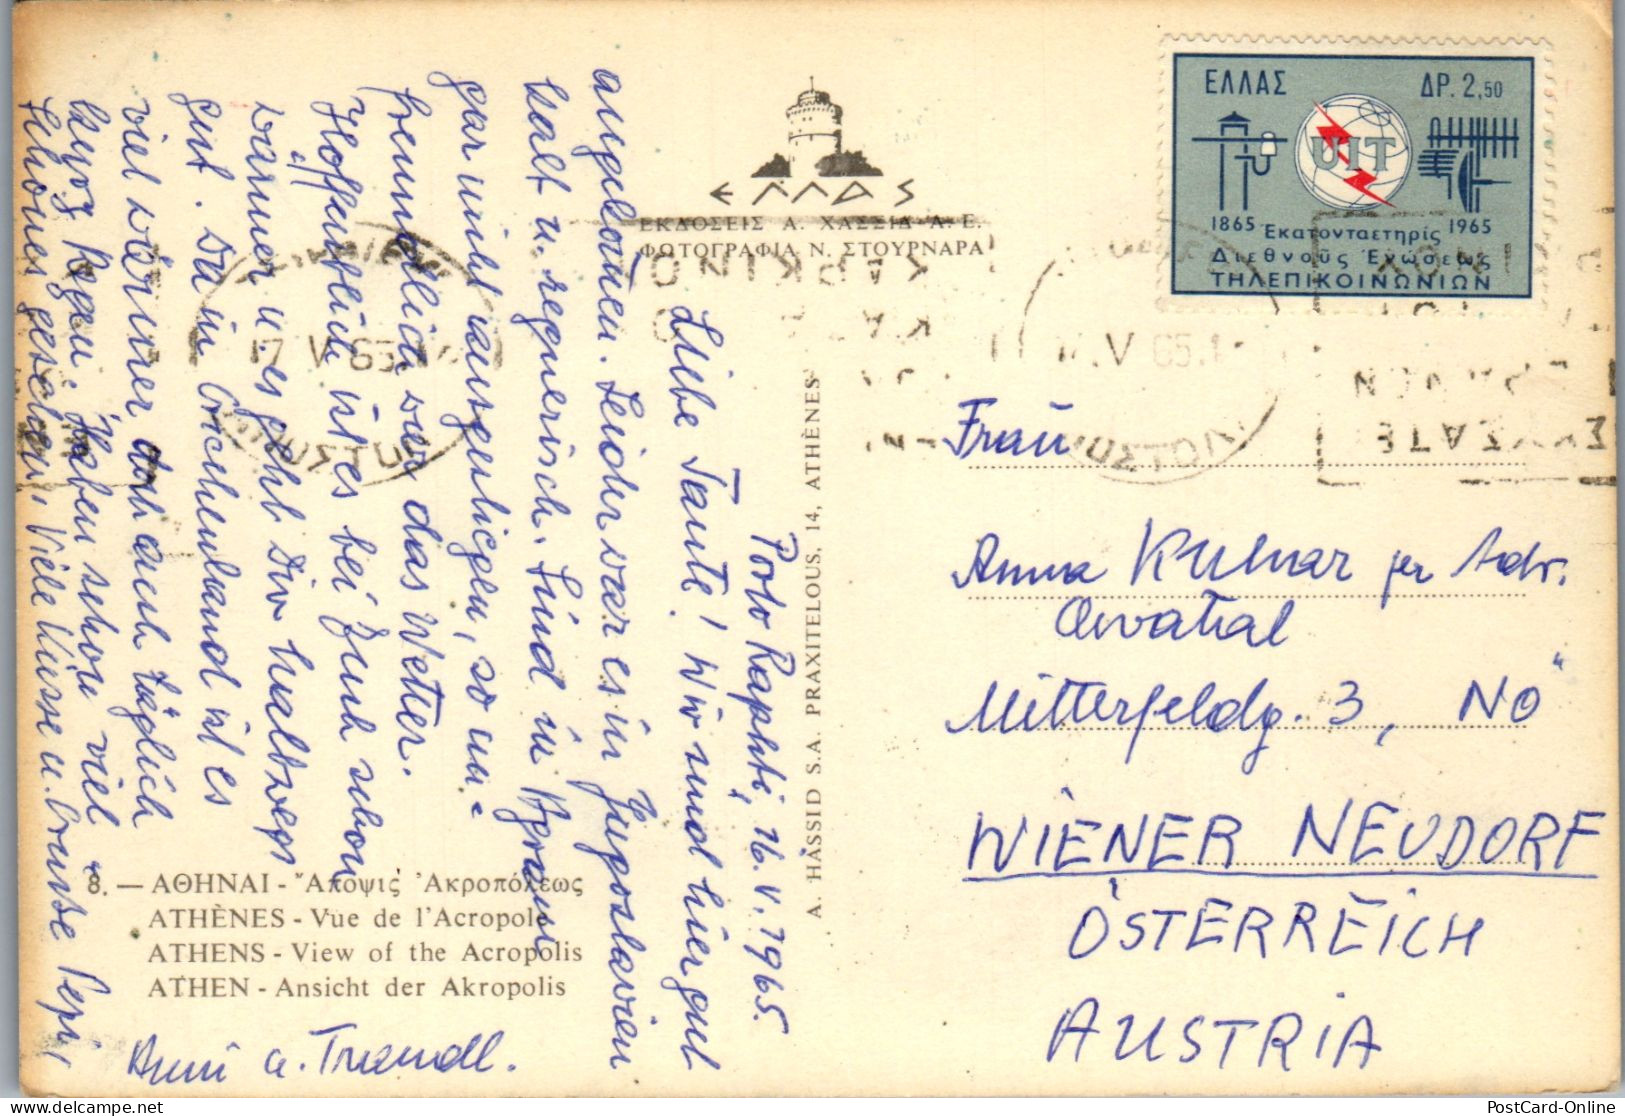 ΕΛΛΑΣ ΔΡ. 2,50
UIT
1865 Ἑκατονταετηρὶς 1965
Διεθνοῦς Ἑνώσεως
ΤΗΛΕΠΙΚΟΙΝΩΝΙΩΝ
ΕΛΛΑΣ
ΕΚΔΟΣΕΙΣ Α. ΧΑΣΣΙΔ Α. Ε.
ΦΩΤΟΓΡΑΦΙΑ Ν. ΣΤΟΥΡΝΑΡΑ
A. HASSID S.A. PRAXITELOUS, 14, ATHÈNES
17 V 65
V 65
Porto Raphti, 16. V. 1965
Liebe Tante! Wir sind hier gut
angekommen. Leider war es in Jugoslavien
kalt u. regnerisch. Sind in Agram
gar nicht ausgestiegen, so un-
freundlich war das Wetter.
Hoffentlich ist es bei Euch schon
wärmer u. es geht Dir halbwegs
gut. Da in Griechenland ist es
viel wärmer doch auch täglich
kurz Regen. Haben schon viel
Schönes gesehen. Viele Küsse u. Grüsse Pepi,
Anni u. Traudl.
8. — ΑΘΗΝΑΙ - Ἄποψις Ἀκροπόλεως
ATHÈNES - Vue de l'Acropole
ATHENS - View of the Acropolis
ATHEN - Ansicht der Akropolis
Frau
Anna Kulnar per Adr.
Mitterfeldg. 3, NÖ
WIENER NEUDORF
ÖSTERREICH
AUSTRIA
PostCard-Online